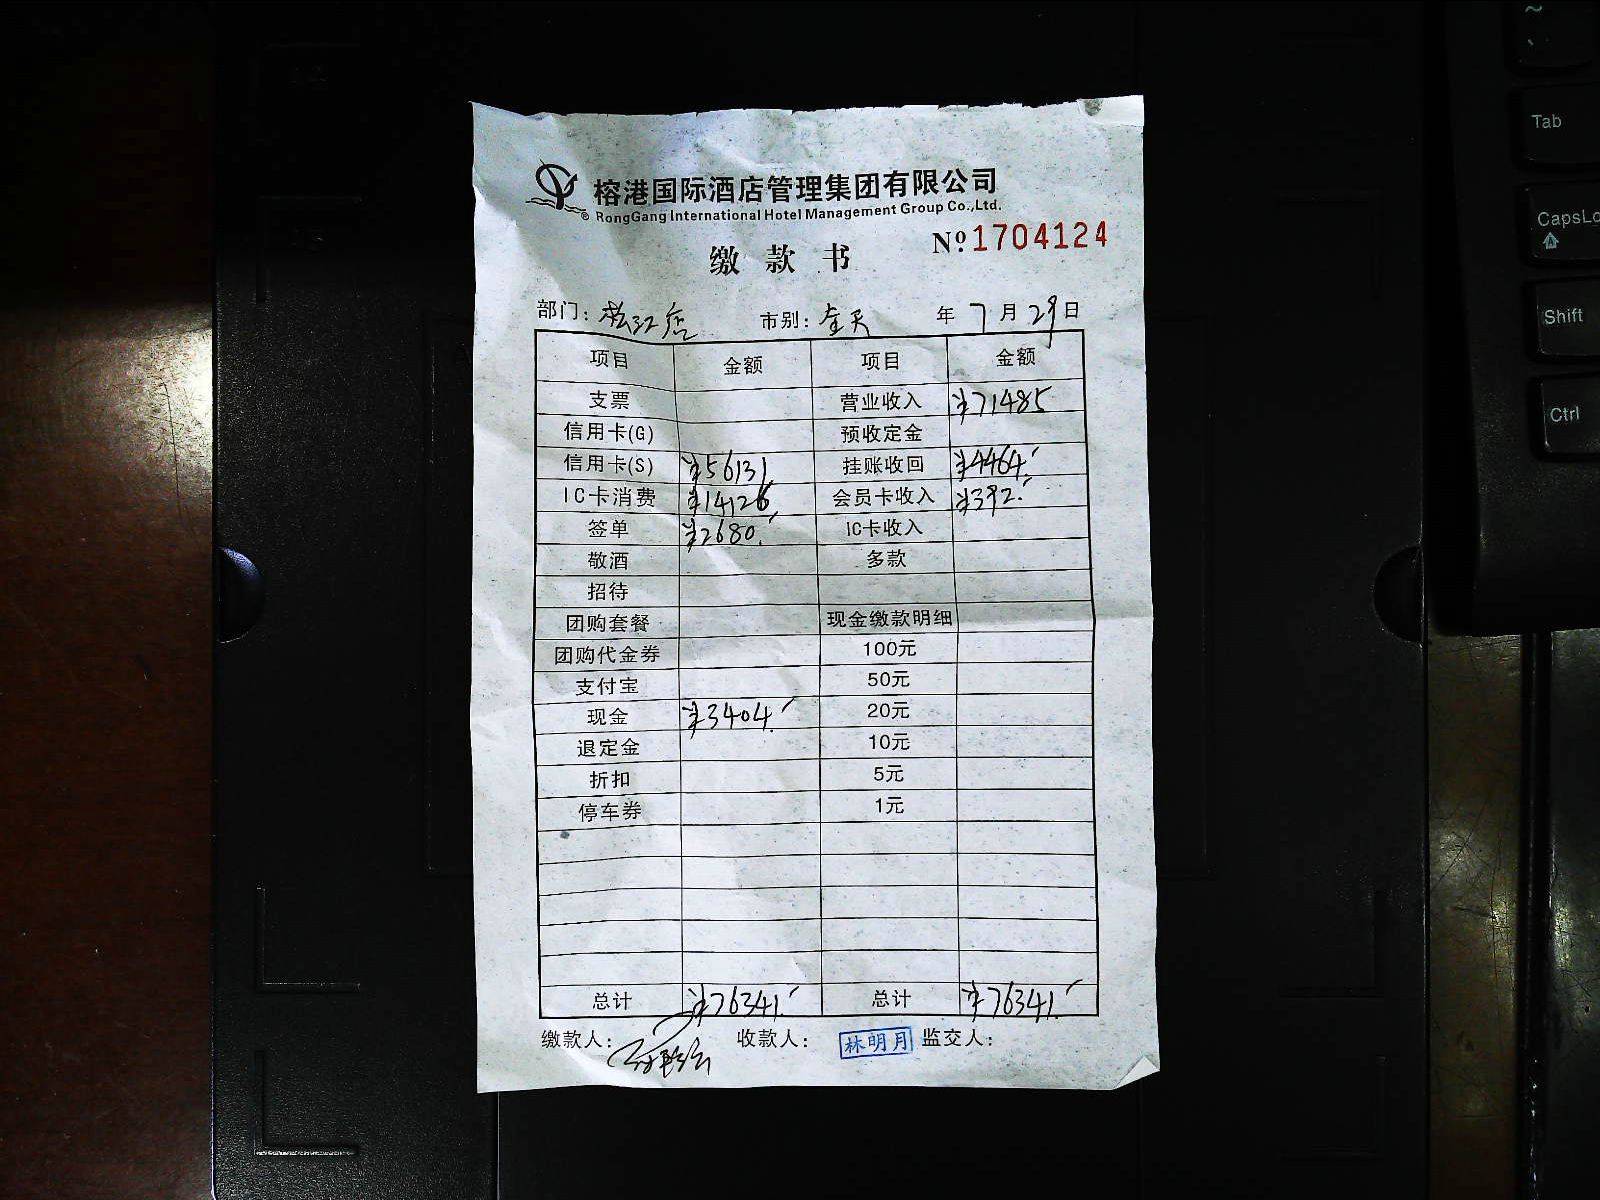 榕港国际酒店管理集团有限公司
® RongGang International Hotel Management Group Co.,Ltd.
缴款书 №1704124
部门: 松江店 市别: 全天 年 7 月 29 日
项目 金额 项目 金额
支票 营业收入 ¥71485
信用卡(G) 预收定金
信用卡(S) ¥56131 挂账收回 ¥4464.
IC卡消费 ¥14126 会员卡收入 ¥392.
签单 ¥2680. IC卡收入
敬酒 多款
招待
团购套餐 现金缴款明细
团购代金券 100元
支付宝 50元
现金 ¥3404. 20元
退定金 10元
折扣 5元
停车券 1元
总计 ¥76341. 总计 ¥76341.
缴款人: 收款人: 林明月 监交人:
Tab
CapsLo
Shift
Ctrl